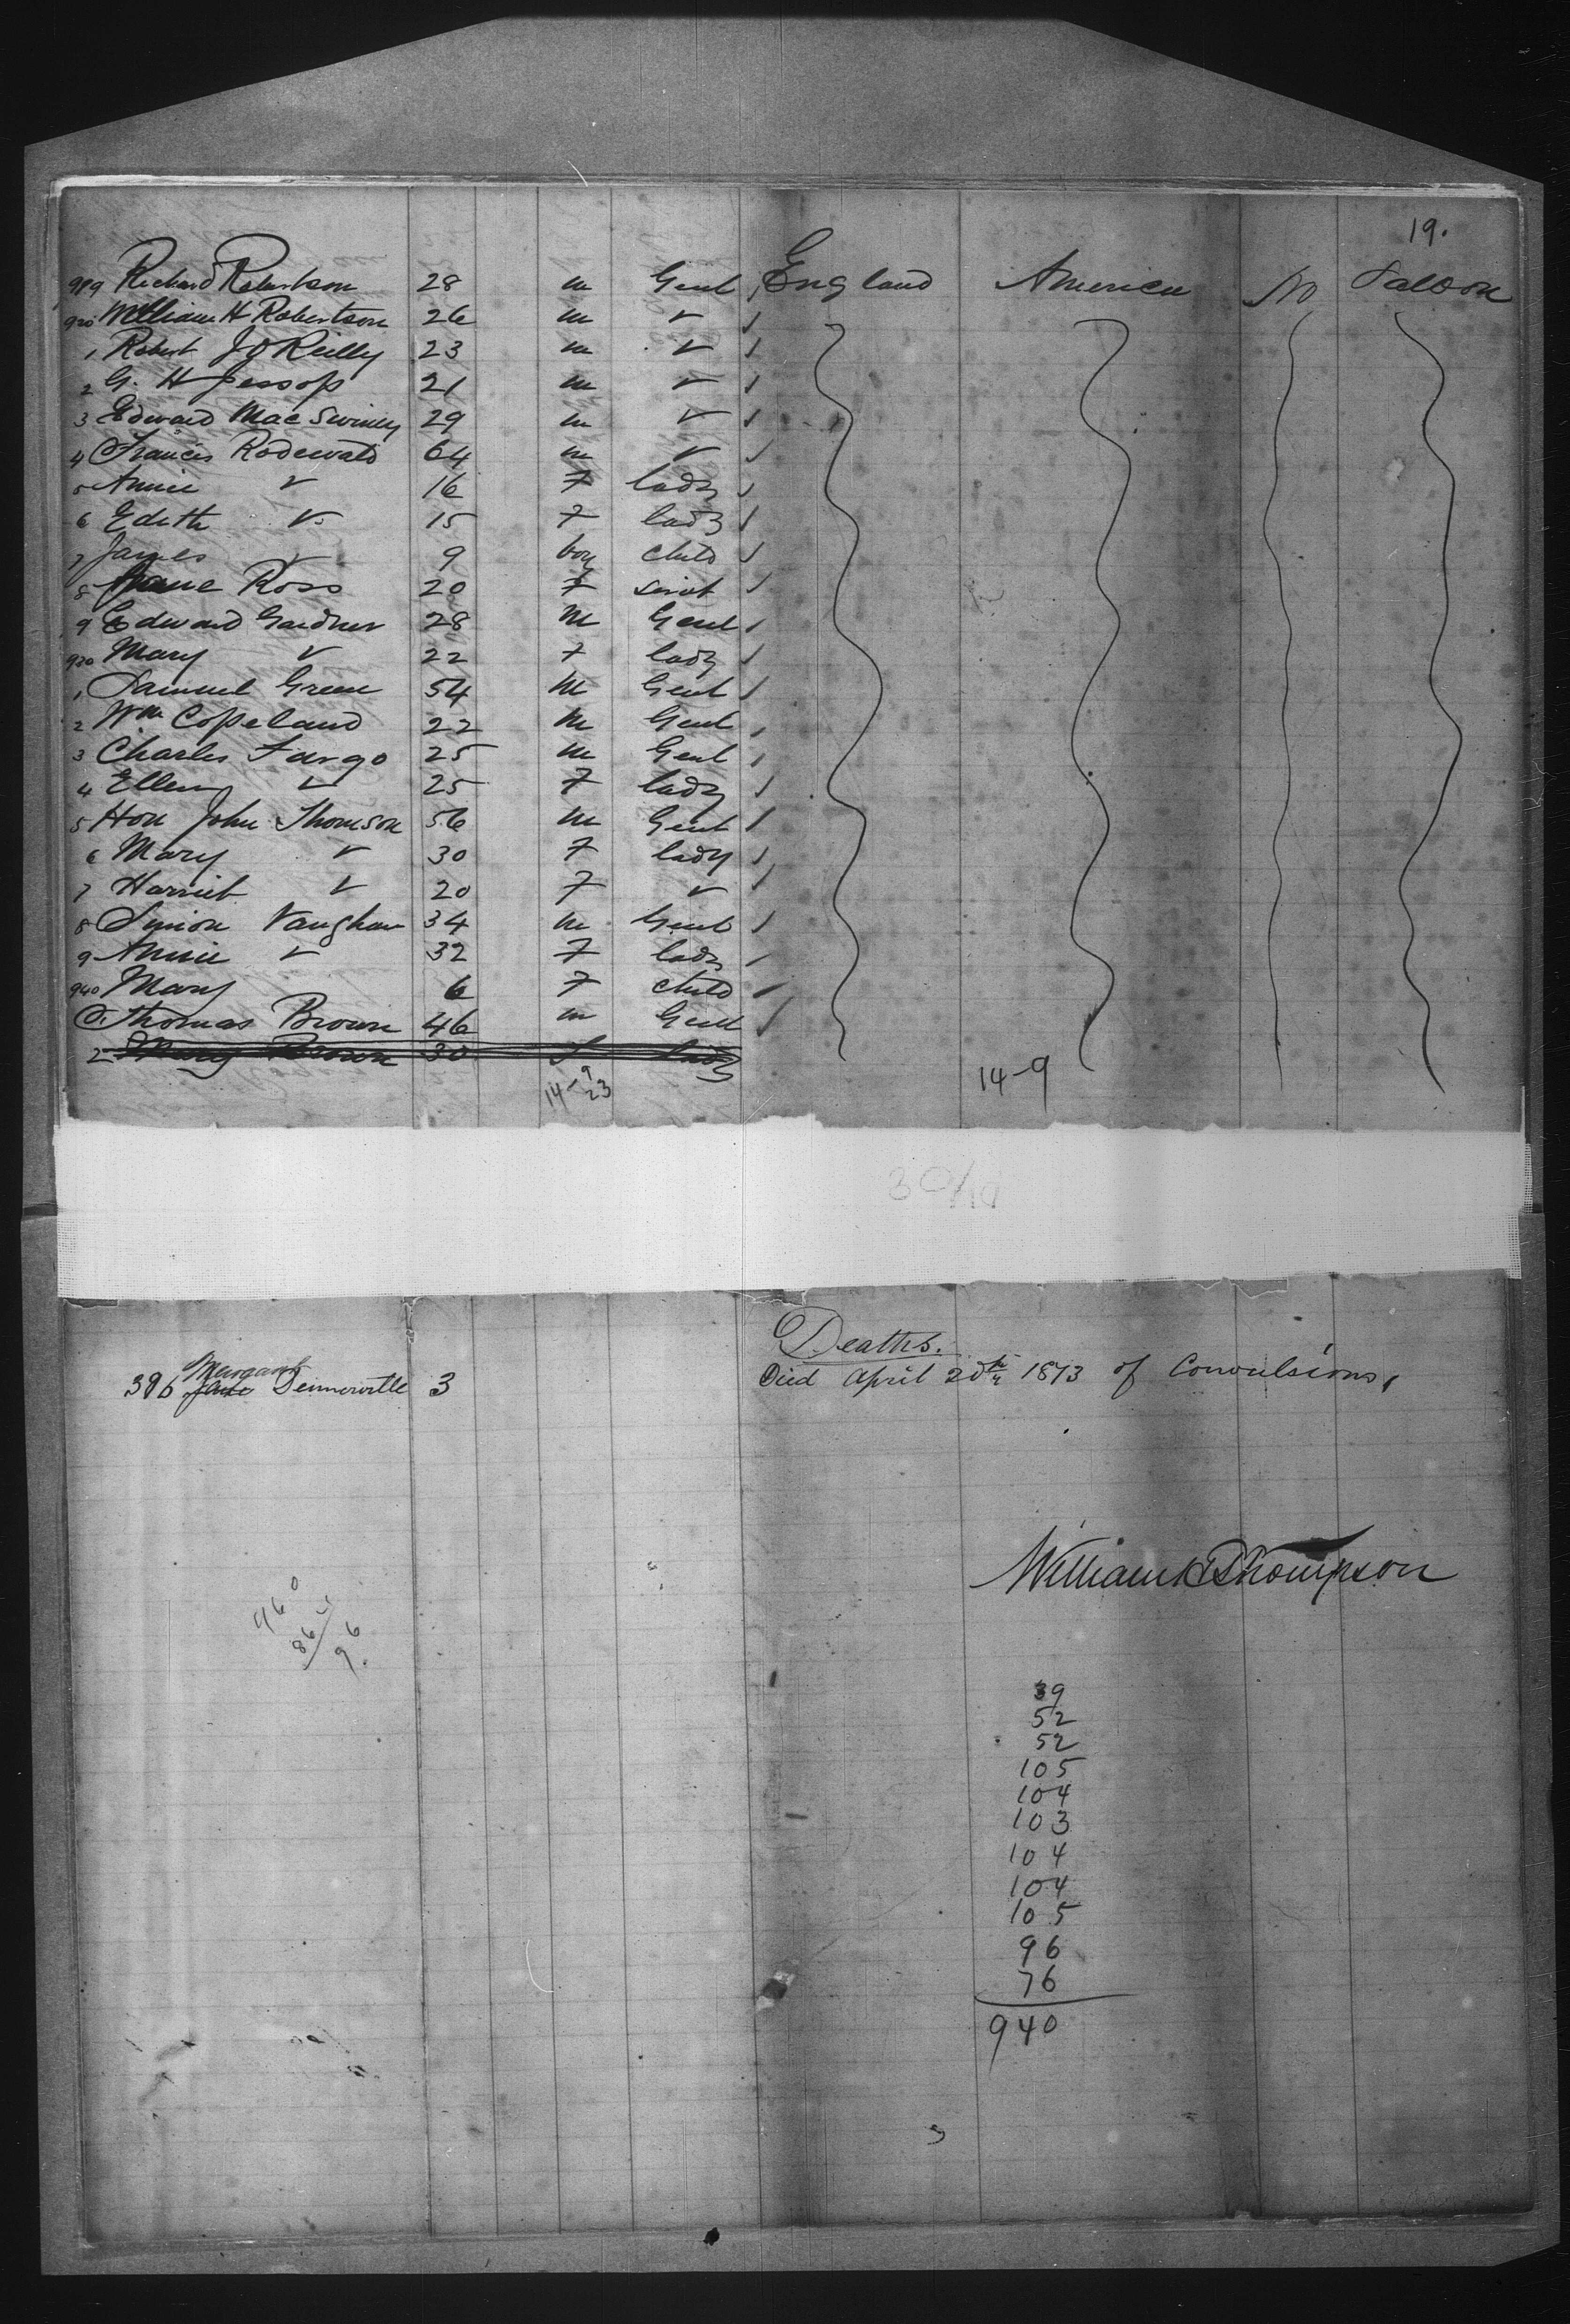 19.
919 Richard Robertson 28 m Gent England America No Saloon
920 William H Robertson 26 m v
1 Robert J O Reilly 23 m v
2 G. H Jessop 21 m v
3 Edward Mac Swiney 29 m v
4 Francis Rodewald 64 m v
5 Annie v 16 F lady
6 Edith v 15 F lady
7 James v 9 boy child
8 Jane Ross 20 F servt
9 Edward Gardner 28 m Gent
930 Mary v 22 F lady
1 Samuel Green 54 m Gent
2 Wm Copeland 22 m Gent
3 Charles Fargo 25 m Gent
4 Ellen v 25 F lady
5 Hon John Thomson 56 m Gent
6 Mary v 30 F lady
7 Harriet v 20 F v
8 Simon Vaughan 34 m Gent
9 Annie v 32 F lady
940 Mary 6 F child
Thomas Brown 46 m Gent
2 Mary Brown 30 F lady
14-9 23 14-9
Deaths.
Margaret
396 Jane Dennerville 3 Died April 20th 1873 of Convulsions,
William Thompson
960
864
96
39
52
52
105
104
103
104
104
105
96
76
940